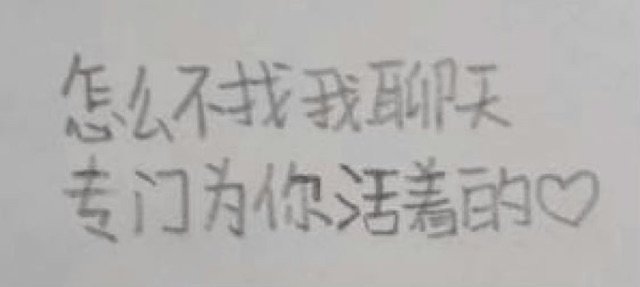 怎么不找我聊天
专门为你活着的♡